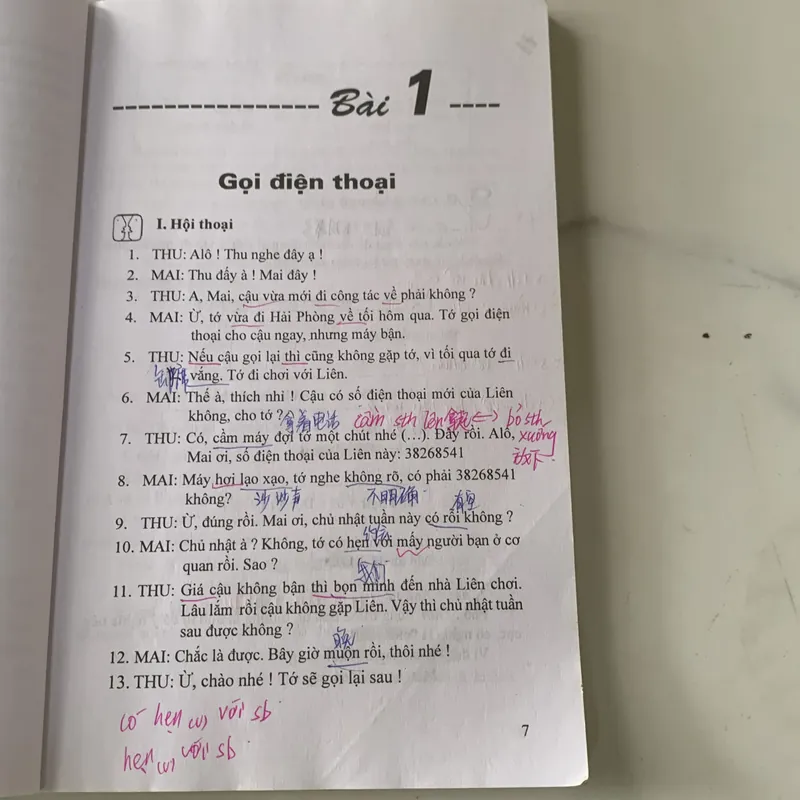 Bài 1
Gọi điện thoại
I. Hội thoại
1. THU: Alô ! Thu nghe đây ạ !
2. MAI: Thu đấy à ! Mai đây !
3. THU: A, Mai, cậu vừa mới đi công tác về phải không ?
4. MAI: Ừ, tớ vừa đi Hải Phòng về tối hôm qua. Tớ gọi điện
thoại cho cậu ngay, nhưng máy bận.
5. THU: Nếu cậu gọi lại thì cũng không gặp tớ, vì tối qua tớ đi
vắng. Tớ đi chơi với Liên.
6. MAI: Thế à, thích nhỉ ! Cậu có số điện thoại mới của Liên
không, cho tớ ?
拿着电话 cầm sth lên 拿起 <-> bỏ sth
xuống
放下
7. THU: Có, cầm máy đợi tớ một chút nhé (...). Đây rồi. Alô,
Mai ơi, số điện thoại của Liên này: 38268541
8. MAI: Máy hơi lạo xạo, tớ nghe không rõ, có phải 38268541
không?
沙沙声 不明确 有空
9. THU: Ừ, đúng rồi. Mai ơi, chủ nhật tuần này có rỗi không ?
10. MAI: Chủ nhật à ? Không, tớ có hẹn với mấy người bạn ở cơ
quan rồi. Sao ?
我们
11. THU: Giá cậu không bận thì bọn mình đến nhà Liên chơi.
Lâu lắm rồi cậu không gặp Liên. Vậy thì chủ nhật tuần
sau được không ?
晚
12. MAI: Chắc là được. Bây giờ muộn rồi, thôi nhé !
13. THU: Ừ, chào nhé ! Tớ sẽ gọi lại sau !
có hẹn (v) với sb
hẹn (v) với sb
7